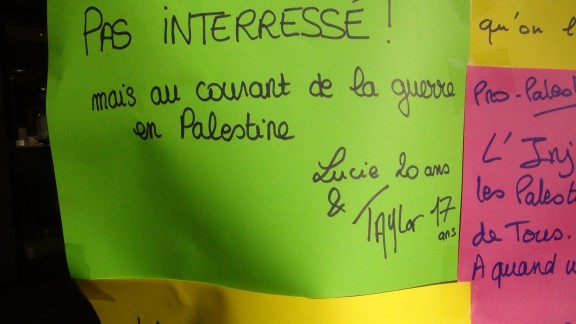 PAS INTERRESSÉ !
mais au courant de la guerre
en Palestine
Lucie 20 ans
& TAYlor 17
ans
qu'on
Pro-Palest
L'Inj
les Palest
de Tous.
A quand u